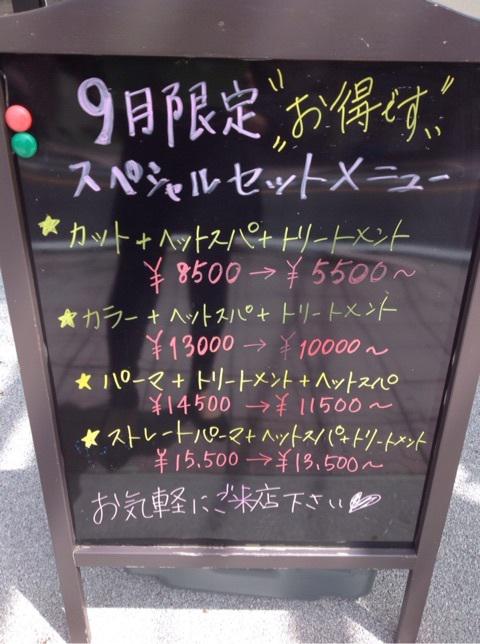 9月限定"お得です"
スペシャルセットメニュー
★カット+ヘットスパ+トリートメント
¥8500→¥5500〜
★カラー+ヘットスパ+トリートメント
¥13000→¥10000〜
★パーマ+トリートメント+ヘットスパ
¥14500→¥11500〜
★ストレートパーマ+ヘットスパ+トリートメント
¥15,500→¥13,500〜
お気軽にご来店下さい♡